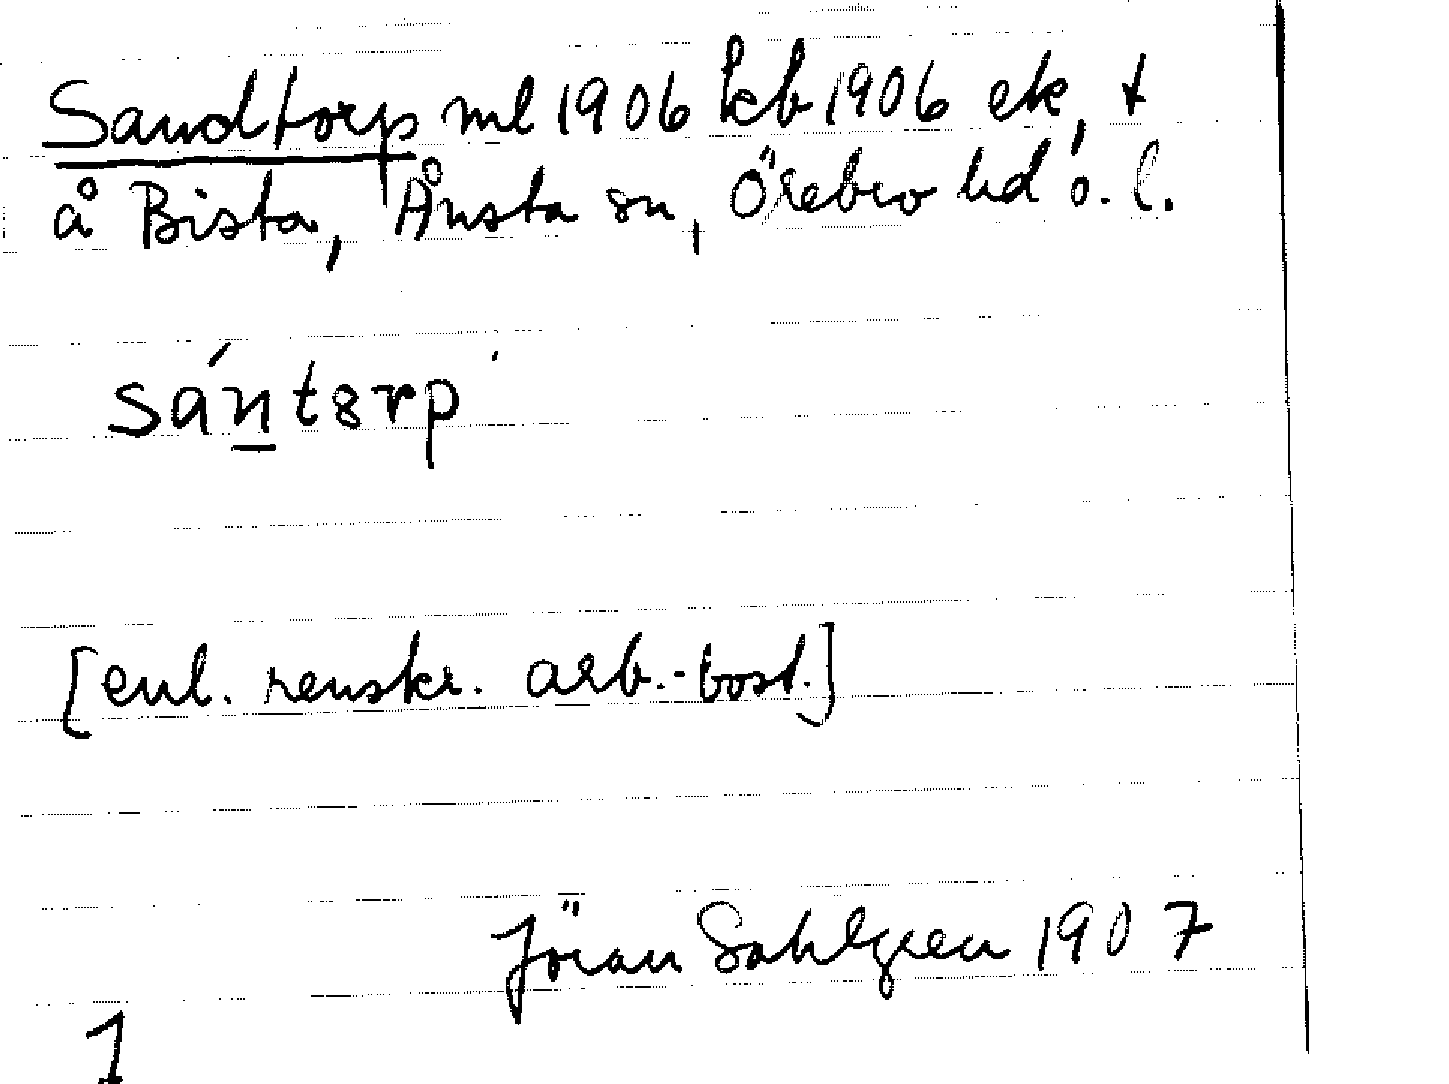 Sandtorp ml 1906 kb 1906 ek, t
å Bista, Ånsta sn, Örebro hd ö. l.
sán̲tɜrp
[enl. renskr. arb.-bost.]
Jöran Sahlgren 1907
1